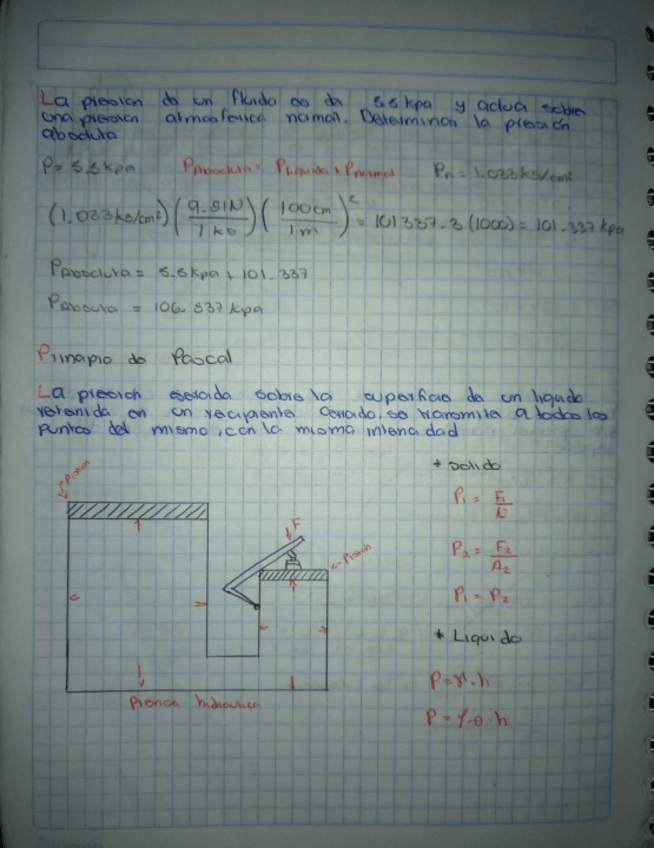 La presion de un fluido es de 5.5 kpa y actua sobre
una presion atmosferica normal. Determinar la presion
absoluta
P= 5.5 kpa   PAbsoluta= PLiquida + Pnormal   Pn = 1.033 kg/cm²
(1.033 kg/cm²) (9.81N/1 kg) (100cm/1m)² = 101337.3 (1000) = 101.337 kpa
PAbsoluta = 5.5 kpa + 101.337
PAbsoluta = 106.837 kpa
Principio de Pascal
La presion ejercida sobre la superficie de un liquido
retenida en un recipiente cerrado, se transmite a todos los
puntos del mismo, con la misma intensidad
* Solido
Piston
P1 = F1/
F
P2 = F2/A2
Piston
P1 = P2
* Liquido
P=γ.h
Prensa hidraulica
P = ρ.g.h